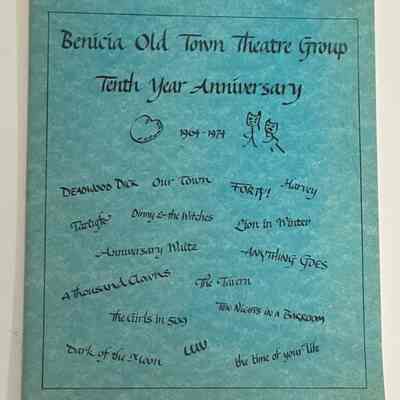 Benicia Old Town Theatre Group
Tenth Year Anniversary
1964-1974
Deadwood Dick Our Town FORTY! Harvey
Tartuffe Dinny & the Witches Lion in Winter
Anniversary Waltz ANYTHING GOES
A Thousand Clowns The Tavern
The Girls in 509 Ten Nights in a Barroom
Dark of the Moon LUV the time of your life